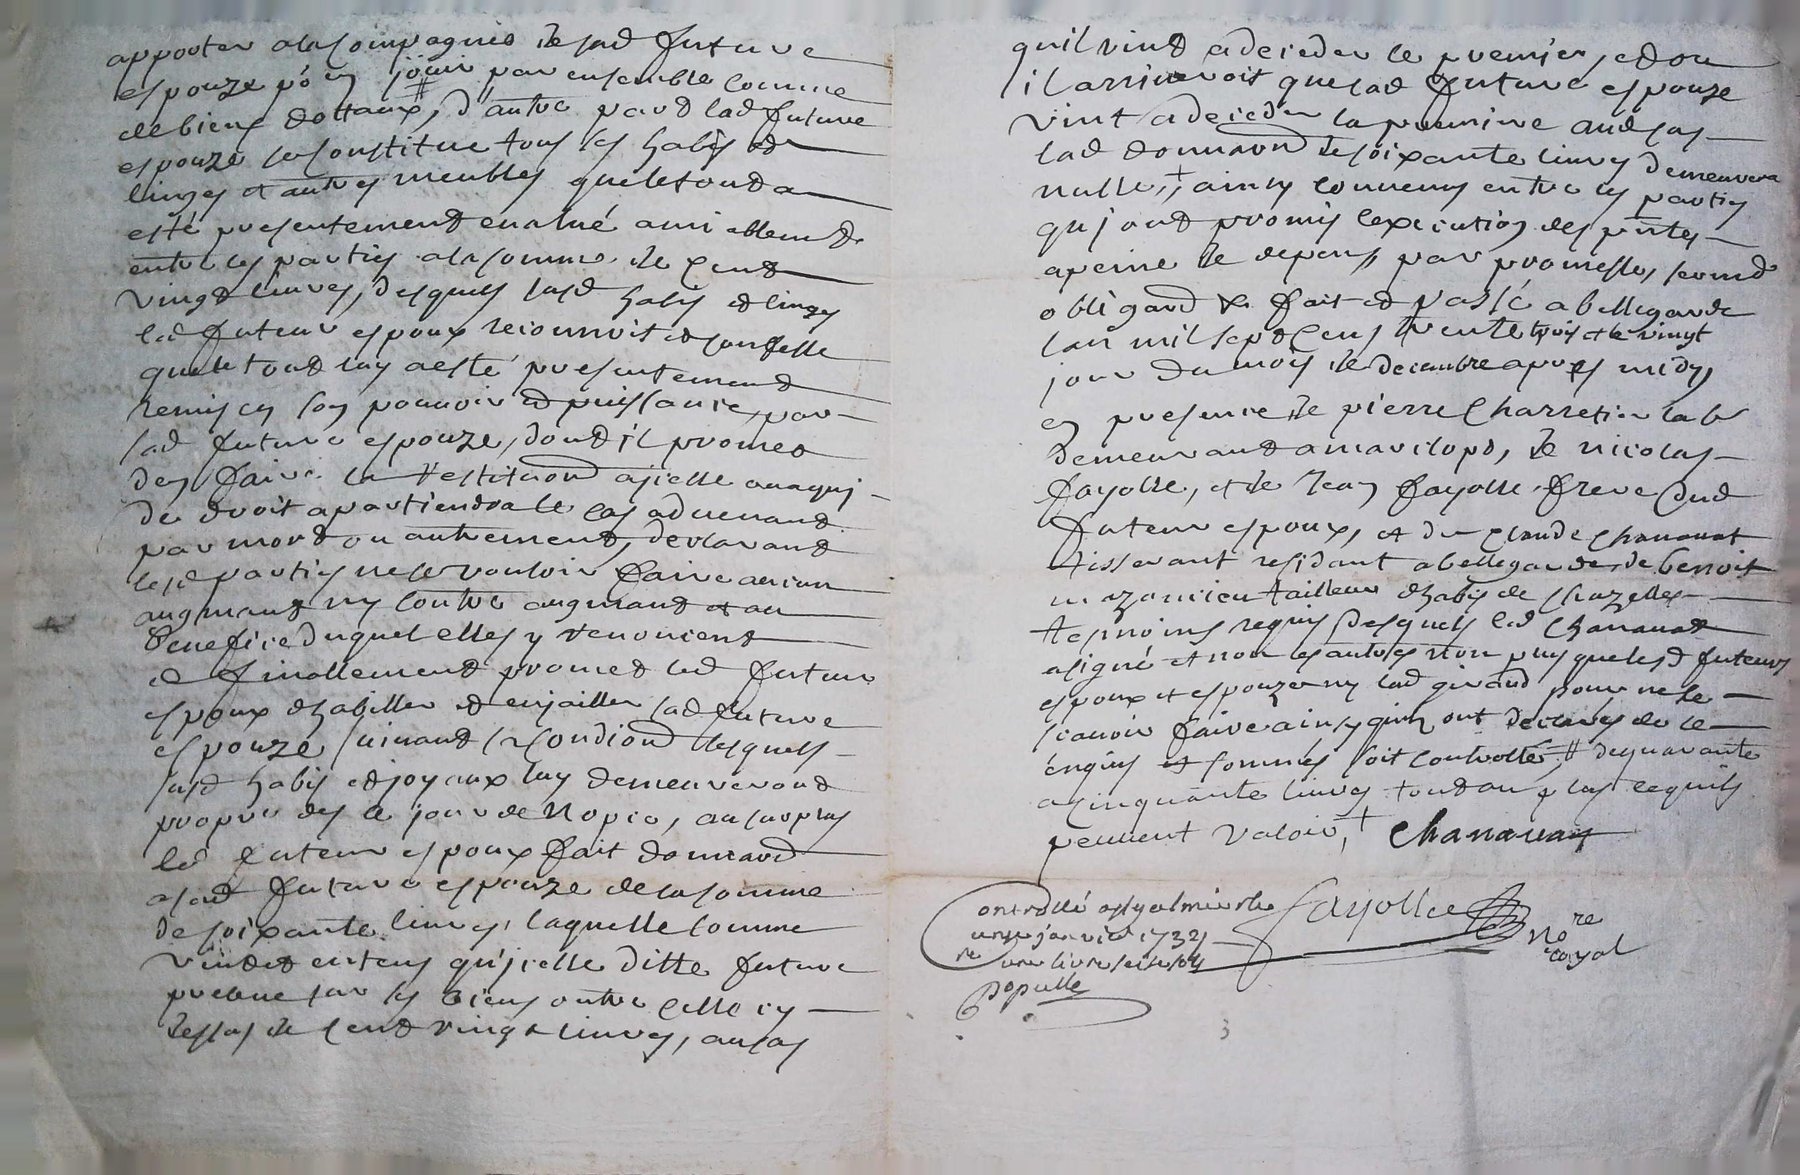 apporter a la compagnie de lad future
espouze p^r en joüir par ensemble comme
de biens dottaux, d'autre part lad future
espouze se constitue tous ses habis et
linges et autres meubles que le tout a
esté presentement evalué amiablement
entre les parties a la somme de cent
vingt livres, desquels susd habis et linges
led futeur espoux reconnoit et confesse
que le tout luy a esté presentement
remis en son pouvoir et puissance, par
lad future espouze, dont il promet
den faire la restitution a jcelle ou a qui
de droit apartiendra le cas advenant
par mort ou autrement, declarant
lesd parties ne se vouloir faire aucun
augmant ny contre augmant et au
benefice duquel elles y renoncent
et finallement promet led futeur
espoux dhabiller et enjailler lad future
espouze suivant sa condiond lesquels
susd habis et joyaux luy demeureront
propre des le jour de nopce, au surplus
led futeur espoux fait donnaond
a lad future espouze de la somme
de soixante livres, laquelle somme
veut et entens qu'jcelle ditte future
prenne sur ses biens outre celle cy
dessus de cent vingt livres, au cas
quil vint a deceder le premier, et ou
il arriveroit que lad future espouze
vint a deceder la premiere aud cas
lad donnaond de soixante livres demeurera
nulle, + ainsy convenus entre les parties
qui ont promis lexecution des p^ntes
a peine de depens, par promesses, serm^t
obligaond &c fait et passé a bellegarde
lan mil sept cens trente trois et le vingt
jour du mois de decembre apres midy,
en presence de pierre Charretier lab^r
demeurant a mari­lop­s, de nicolas
fayolle, et de Jean fayolle frere dud
futeur espoux, et de claude Chanauat
tisserant residant a bellegarde de benoit
mazoncieu tailleur dhabis de chazelles
tesmoins requis desquels led Chanauat
a signé et non les autres non plus que lesd futeurs
espoux et espouze ny lad giraud pour ne le
scavoir faire ainsy quils ont declarés de ce
enquis et sommés soit controllé, # de quarante
a cinquante livres tout au plus lequels
peuvent valoir, + Chanauat
Controllé a st galmier le
unze janvier 1734
re une livre seize s
Populle
fayolle
No^re
royal